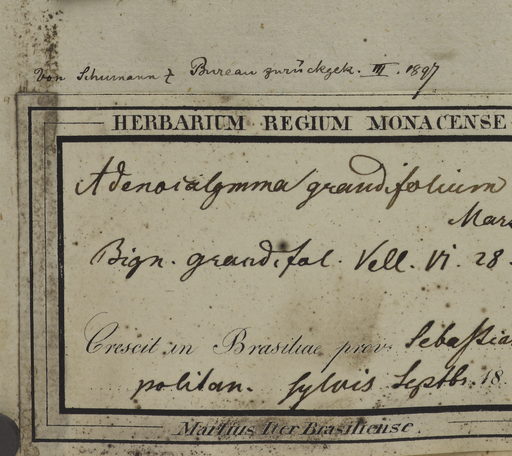 Von Schumann & Bureau zurückgek. III. 1897
HERBARIUM REGIUM MONACENSE
Adenocalymma grandifolium
Mars
Bign. grandifol. Vell. VI. 28.
Crescit in Brasiliae prov. Sebastia
politan. sylvis Septbr. 18
Martius Iter Brasiliense.